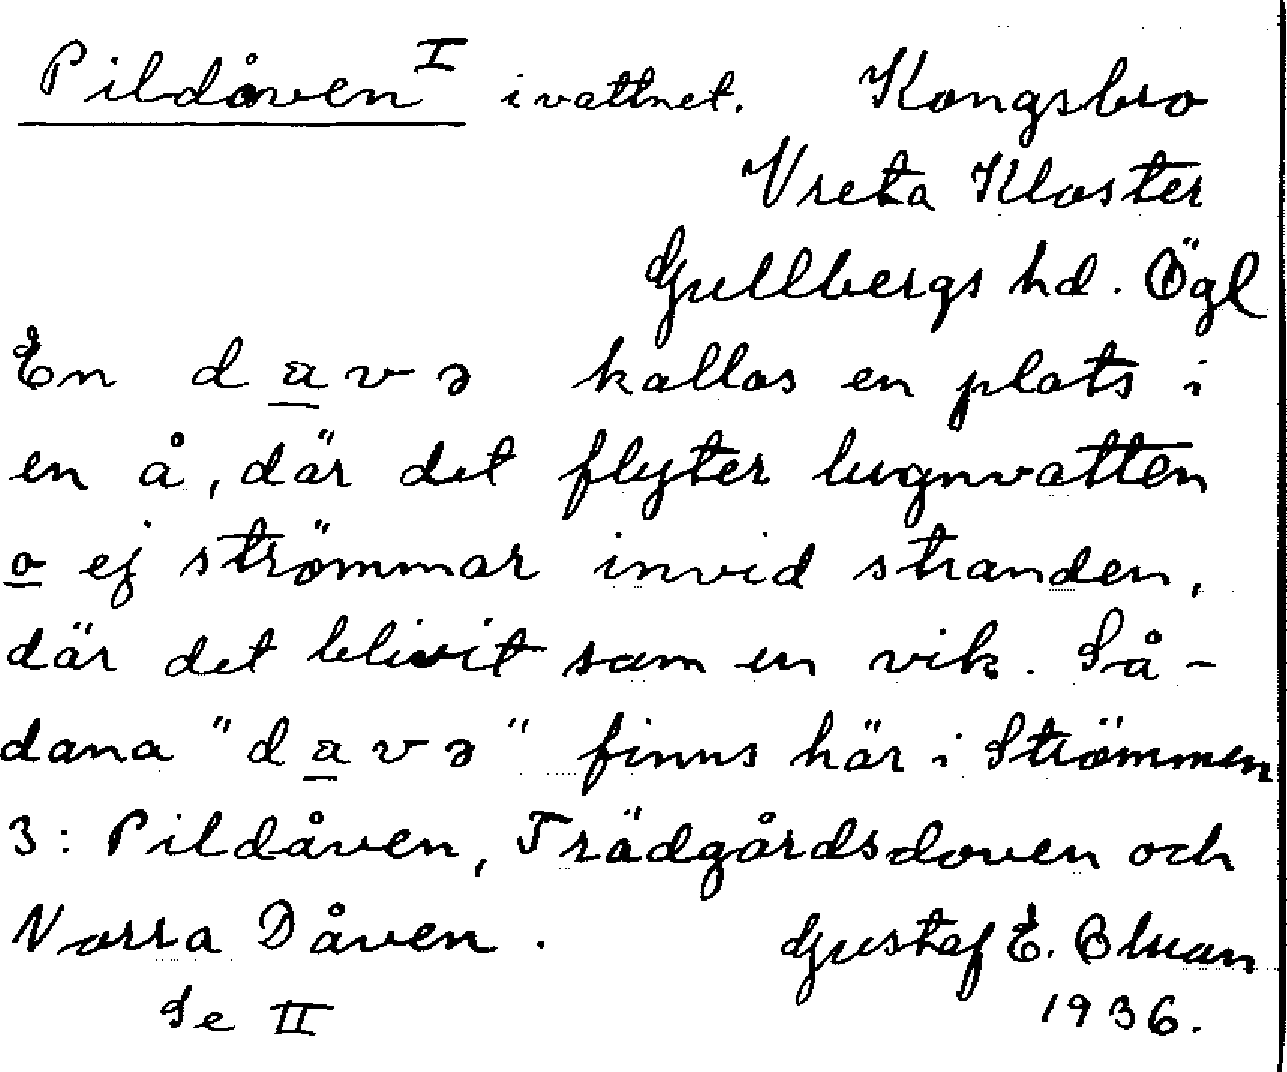 Pildåven I i vattnet. Kongsbro
Vreta Kloster
Gullbergs hd. Ögl
En d a v ə kallas en plats i
en å, där det flyter lugnvatten
o ej strömmar invid stranden,
där det blivit som en vik. Så-
dana "d a v ə" finns här i Strömmen
3: Pildåven, Trädgårdsdoven och
Norra Dåven.
Gustaf E.
Se II
1936.